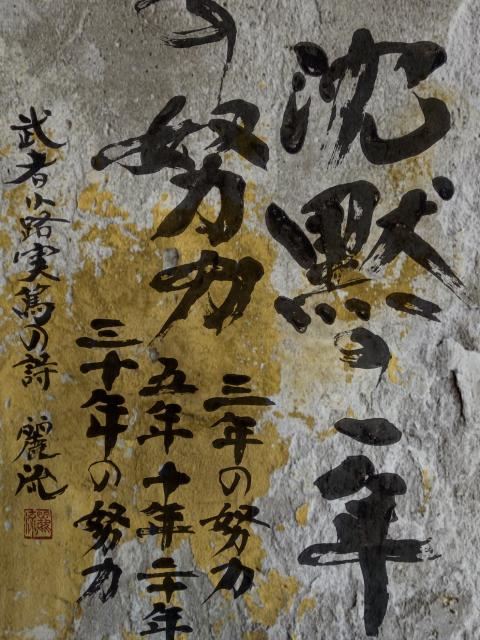 沈黙の一年
の努力
三年の努力
五年十年二十年
三十年の努力
武者小路実篤の詩 麗